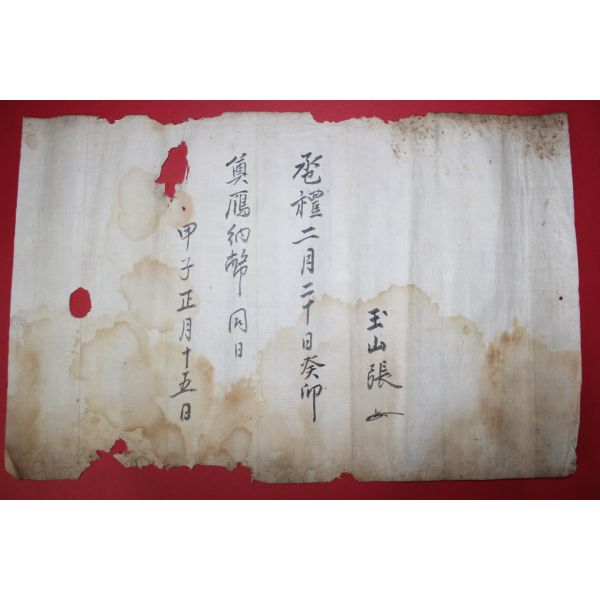 玉山張
巹禮二月二十日癸卯
奠鴈納幣同日
甲子正月十五日